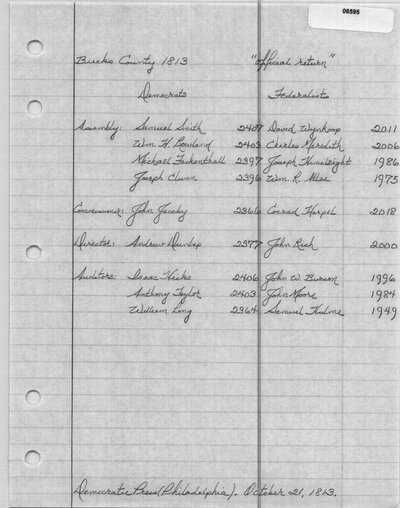 06595
Bucks County 1813 "official return"
Democrats Federalists
Assembly: Samuel Smith 2407 David Wynkoop 2011
Wm. H. Rowland 2403 Charles Meredith 2006
Michael Fackenthall 2397 Joseph 1986
Joseph Clunn 2396 Wm. R. Atlee 1975
Commissioner: John Jacoby 2366 Conrad Harpel 2018
Director: Andrew Dunlap 2377 John Rich 2000
Auditors: Isaac Hicks 2406 John W. Burson 1996
Anthony Taylor 2403 John Moore 1984
William Long 2364 Samuel Hulme 1949
Democratic Press (Philadelphia). October 21, 1813.